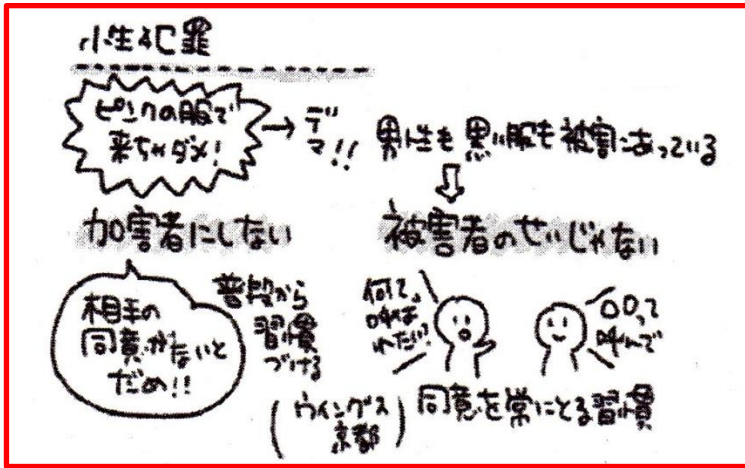 性犯罪
ピンクの服で
来ちゃダメ!
→デマ!!
男性も黒い服も被害にあっている
加害者にしない
被害者のせいじゃない
相手の
同意がないと
だめ!!
普段から
習慣
づける
何て
呼ばれたい?
〇〇って
呼んで
同意を常にとる習慣
(ウィングス
京都)